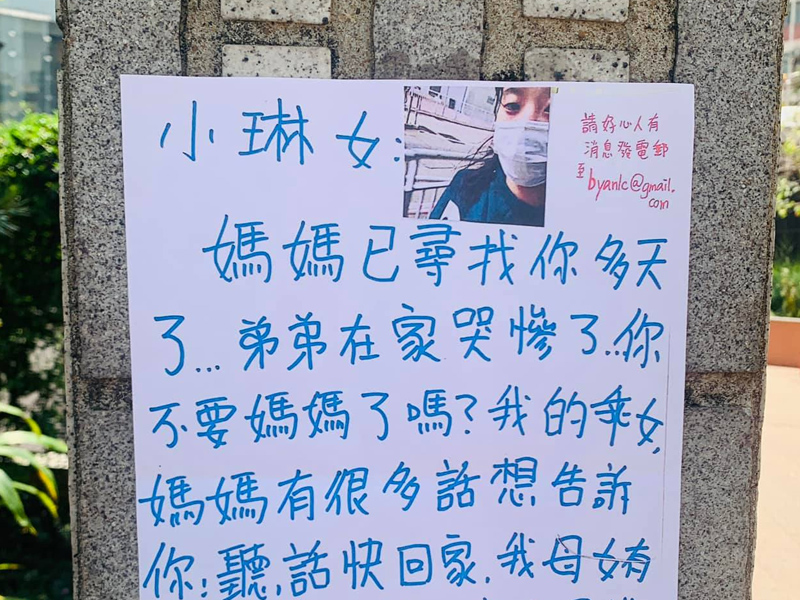 小琳女：
請好心人有
消息發電郵
至byanlc@gmail.
com
媽媽已尋找你多天
了...弟弟在家哭慘了...你
不要媽媽了嗎？我的乖女，
媽媽有很多話想告訴
你：聽話快回家，我母女有